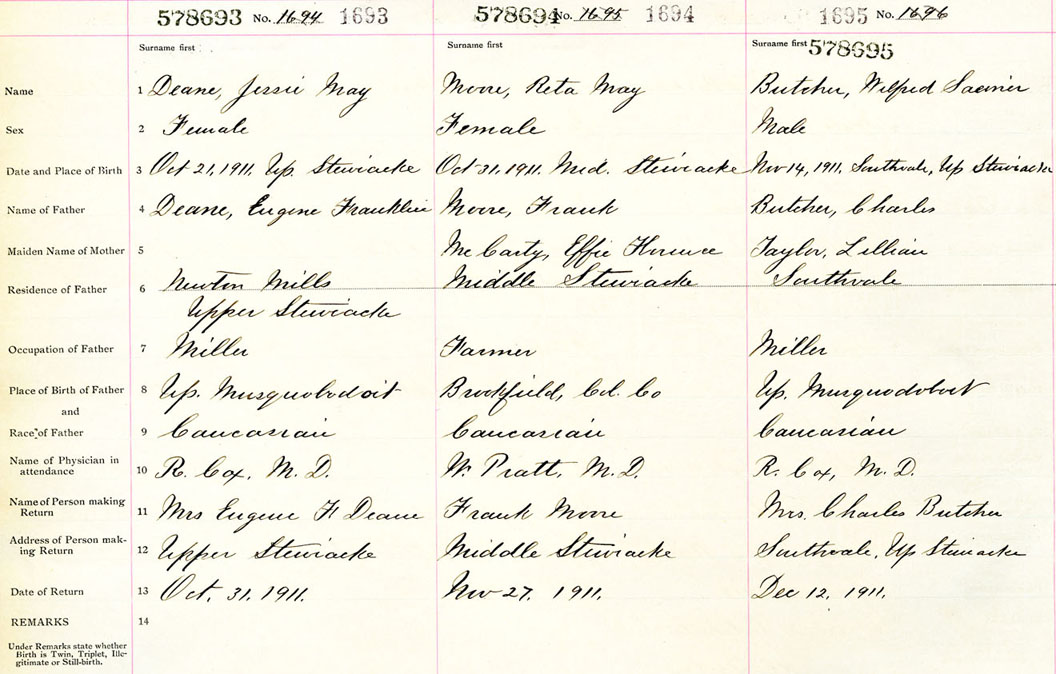 578693 No. 1694 1693 578694 No. 1695 1694 1695 No. 1696
Surname first Surname first Surname first 578695
Name 1 Deane, Jessie May Moore, Reta May Butcher, Wilfred
Sex 2 Female Female Male
Date and Place of Birth 3 Oct 21, 1911, Up. Stewiacke Oct 31, 1911. Mid. Stewiacke Nov 14, 1911, Southvale, Up Stewiacke
Name of Father 4 Deane, Eugene Franklin Moore, Frank Butcher, Charles
Maiden Name of Mother 5 McCarty, Effie Florence Taylor, Lillian
Residence of Father 6 Newton Mills Middle Stewiacke Southvale
Upper Stewiacke
Occupation of Father 7 Miller Farmer Miller
Place of Birth of Father 8 Up. Musquobodoit Brookfield, Col. Co Up. Musquodoboit
and
Race of Father 9 Caucasian Caucasian Caucasian
Name of Physician in
attendance 10 R. Cox, M. D. W. Pratt, M. D. R. Cox, M. D.
Name of Person making
Return 11 Mrs Eugene F Deane Frank Moore Mrs. Charles Butcher
Address of Person mak-
ing Return 12 Upper Stewiacke Middle Stewiacke Southvale, Up Stewiacke
Date of Return 13 Oct. 31. 1911. Nov 27, 1911. Dec 12, 1911.
REMARKS 14
Under Remarks state whether
Birth is Twin, Triplet, Ille-
gitimate or Still-birth.